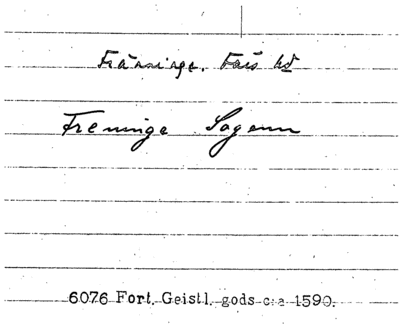 Fränninge. Färs hd
Freninge Sogenn
6076 Fort. Geistl. gods c:a 1590.